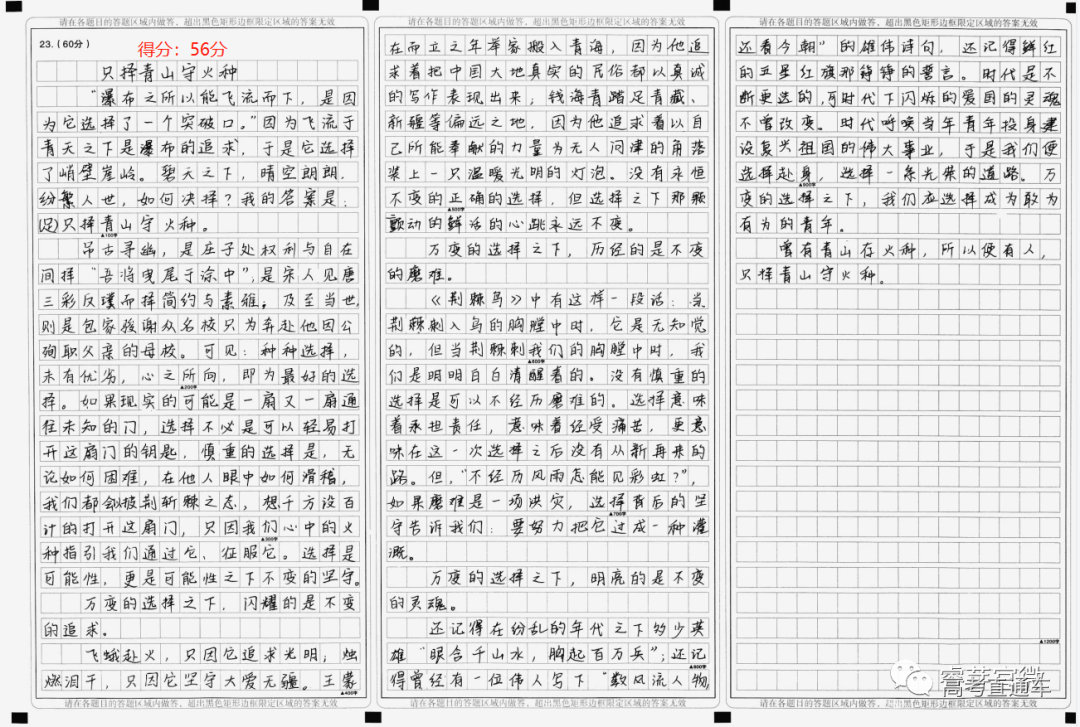 请在各题目的答题区域内做答，超出黑色矩形边框限定区域的答案无效
23.（60分）
得分：56分
只择青山守火种
“瀑布之所以能飞流而下，是因
为它选择了一个突破口。”因为飞流于
青天之下是瀑布的追求，于是它选择
了峭壁崖岭。碧天之下，晴空朗朗，
纷繁人世，如何决择？我的答案是：
只择青山守火种。
▲100字
吊古寻幽，是庄子处权利与自在
间择“吾将曳尾于涂中”，是宋人见唐
三彩反璞而择简约与素雅。及至当世，
则是包家骏谢众名校只为奔赴他因公
殉职父亲的母校。可见：种种选择，
未有优劣，心之所向，即为最好的选
▲200字
择。如果现实的可能是一扇又一扇通
往未知的门，选择不必是可以轻易打
开这扇门的钥匙，慎重的选择是，无
论如何困难，在他人眼中如何滑稽，
我们都会披荆斩棘之态，想千方设百
计的打开这扇门，只因我们心中的火
▲300字
种指引我们通过它、征服它。选择是
可能性，更是可能性之下不变的坚守。
万变的选择之下，闪耀的是不变
的追求。
飞蛾赴火，只因它追求光明；烛
燃泪干，只因它坚守大爱无疆。王蒙
▲400字
请在各题目的答题区域内做答，超出黑色矩形边框限定区域的答案无效
请在各题目的答题区域内做答，超出黑色矩形边框限定区域的答案无效
在而立之年举家搬入青海，因为他追
求着把中国大地真实的民俗都以真诚
的写作表现出来；钱海青踏足青藏、
新疆等偏远之地，因为他追求着以自
己所能奉献的力量为无人问津的角落
装上一只温暖光明的灯泡。没有永恒
不变的正确的选择，但选择之下那颗
▲500字
颤动的鲜活的心跳永远不变。
万变的选择之下，历经的是不变
的磨难。
《荆棘鸟》中有这样一段话：当
荆棘刺入鸟的胸膛中时，它是无知觉
的，但当荆棘刺我们的胸膛中时，我
▲600字
们是明明白白清醒着的。没有慎重的
选择是可以不经历磨难的。选择意味
着承担责任，意味着经受痛苦，更意
味在这一次选择之后没有从新再来的
路。但，“不经历风雨怎能见彩虹？”，
如果磨难是一场洪灾，选择背后的坚
▲700字
守告诉我们：要努力把它过成一种灌
溉。
万变的选择之下，明亮的是不变
的灵魂。
还记得在纷乱的年代之下多少英
雄“眼含千山水，胸起百万兵”；还记
▲800字
得曾经有一位伟人写下“数风流人物，
请在各题目的答题区域内做答，超出黑色矩形边框限定区域的答案无效
请在各题目的答题区域内做答，超出黑色矩形边框限定区域的答案无效
还看今朝”的雄伟诗句，还记得鲜红
的五星红旗那铮铮的誓言。时代是不
断更迭的，可时代下闪烁的爱国的灵魂
不曾改变。时代呼唤当年青年投身建
设复兴祖国的伟大事业，于是我们便
选择赴身，选择一条光荣的道路。万
▲900字
变的选择之下，我们应选择成为敢为
有为的青年。
曾有青山存火种，所以便有人，
只择青山守火种。
▲1200字
请在各题目的答题区域内做答，超出黑色矩形边框限定区域的答案无效
高考直通车